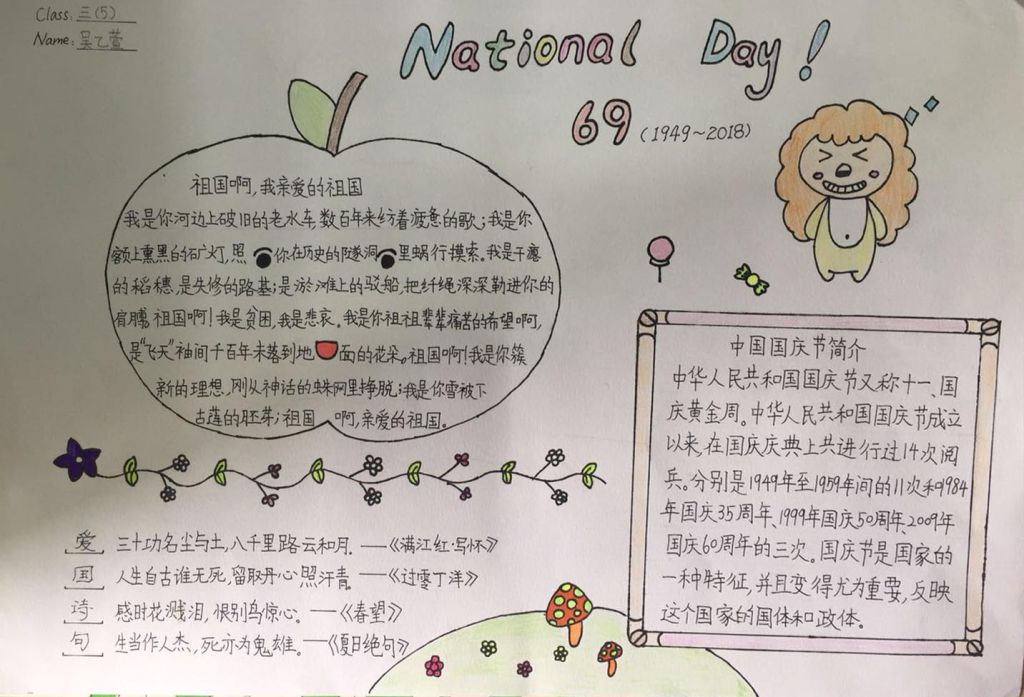 Class: 三(5)
Name: 吴乙萱
National Day!
69 (1949~2018)
祖国啊,我亲爱的祖国
我是你河边上破旧的老水车,数百年来纺着疲惫的歌;我是你
额上熏黑的矿灯,照你在历史的隧洞里蜗行摸索。我是干瘪
的稻穗,是失修的路基;是淤滩上的驳船,把纤绳深深勒进你的
肩膊,祖国啊!我是贫困,我是悲哀。我是你祖祖辈辈痛苦的希望啊,
是“飞天”袖间千百年未落到地面的花朵。祖国啊!我是你簇
新的理想,刚从神话的蛛网里挣脱;我是你雪被下
古莲的胚芽;祖国啊,亲爱的祖国。
中国国庆节简介
中华人民共和国国庆节又称十一、国
庆黄金周。中华人民共和国国庆节成立
以来,在国庆庆典上共进行过14次阅
兵。分别是1949年至1959年间的11次和1984
年国庆35周年、1999年国庆50周年、2009年
国庆60周年的三次。国庆节是国家的
一种特征,并且变得尤为重要,反映
这个国家的国体和政体。
爱 三十功名尘与土,八千里路云和月.——《满江红·写怀》
国 人生自古谁无死,留取丹心照汗青。——《过零丁洋》
诗 感时花溅泪,恨别鸟惊心。——《春望》
句 生当作人杰,死亦为鬼雄。——《夏日绝句》